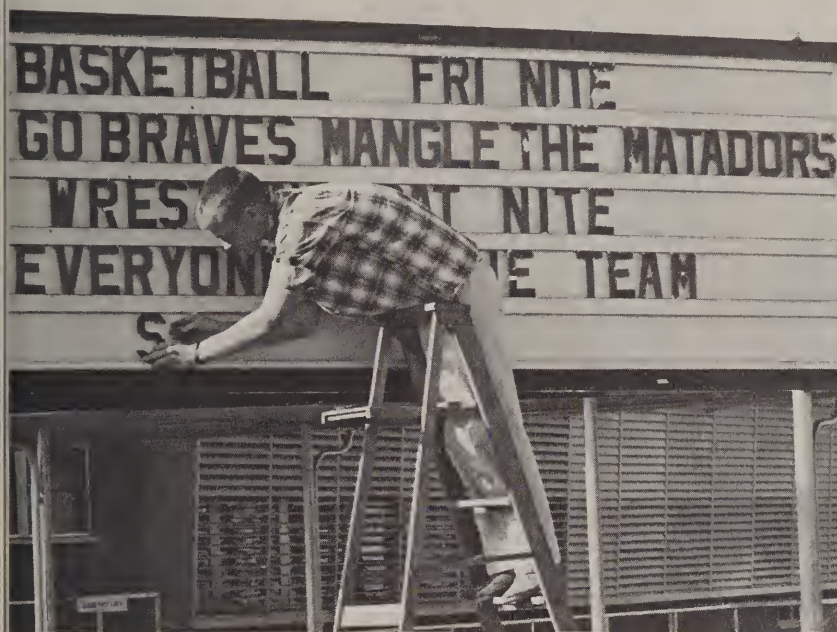 BASKETBALL FRI NITE
GO BRAVES MANGLE THE MATADORS
WREST AT NITE
EVERYON E TEAM
S